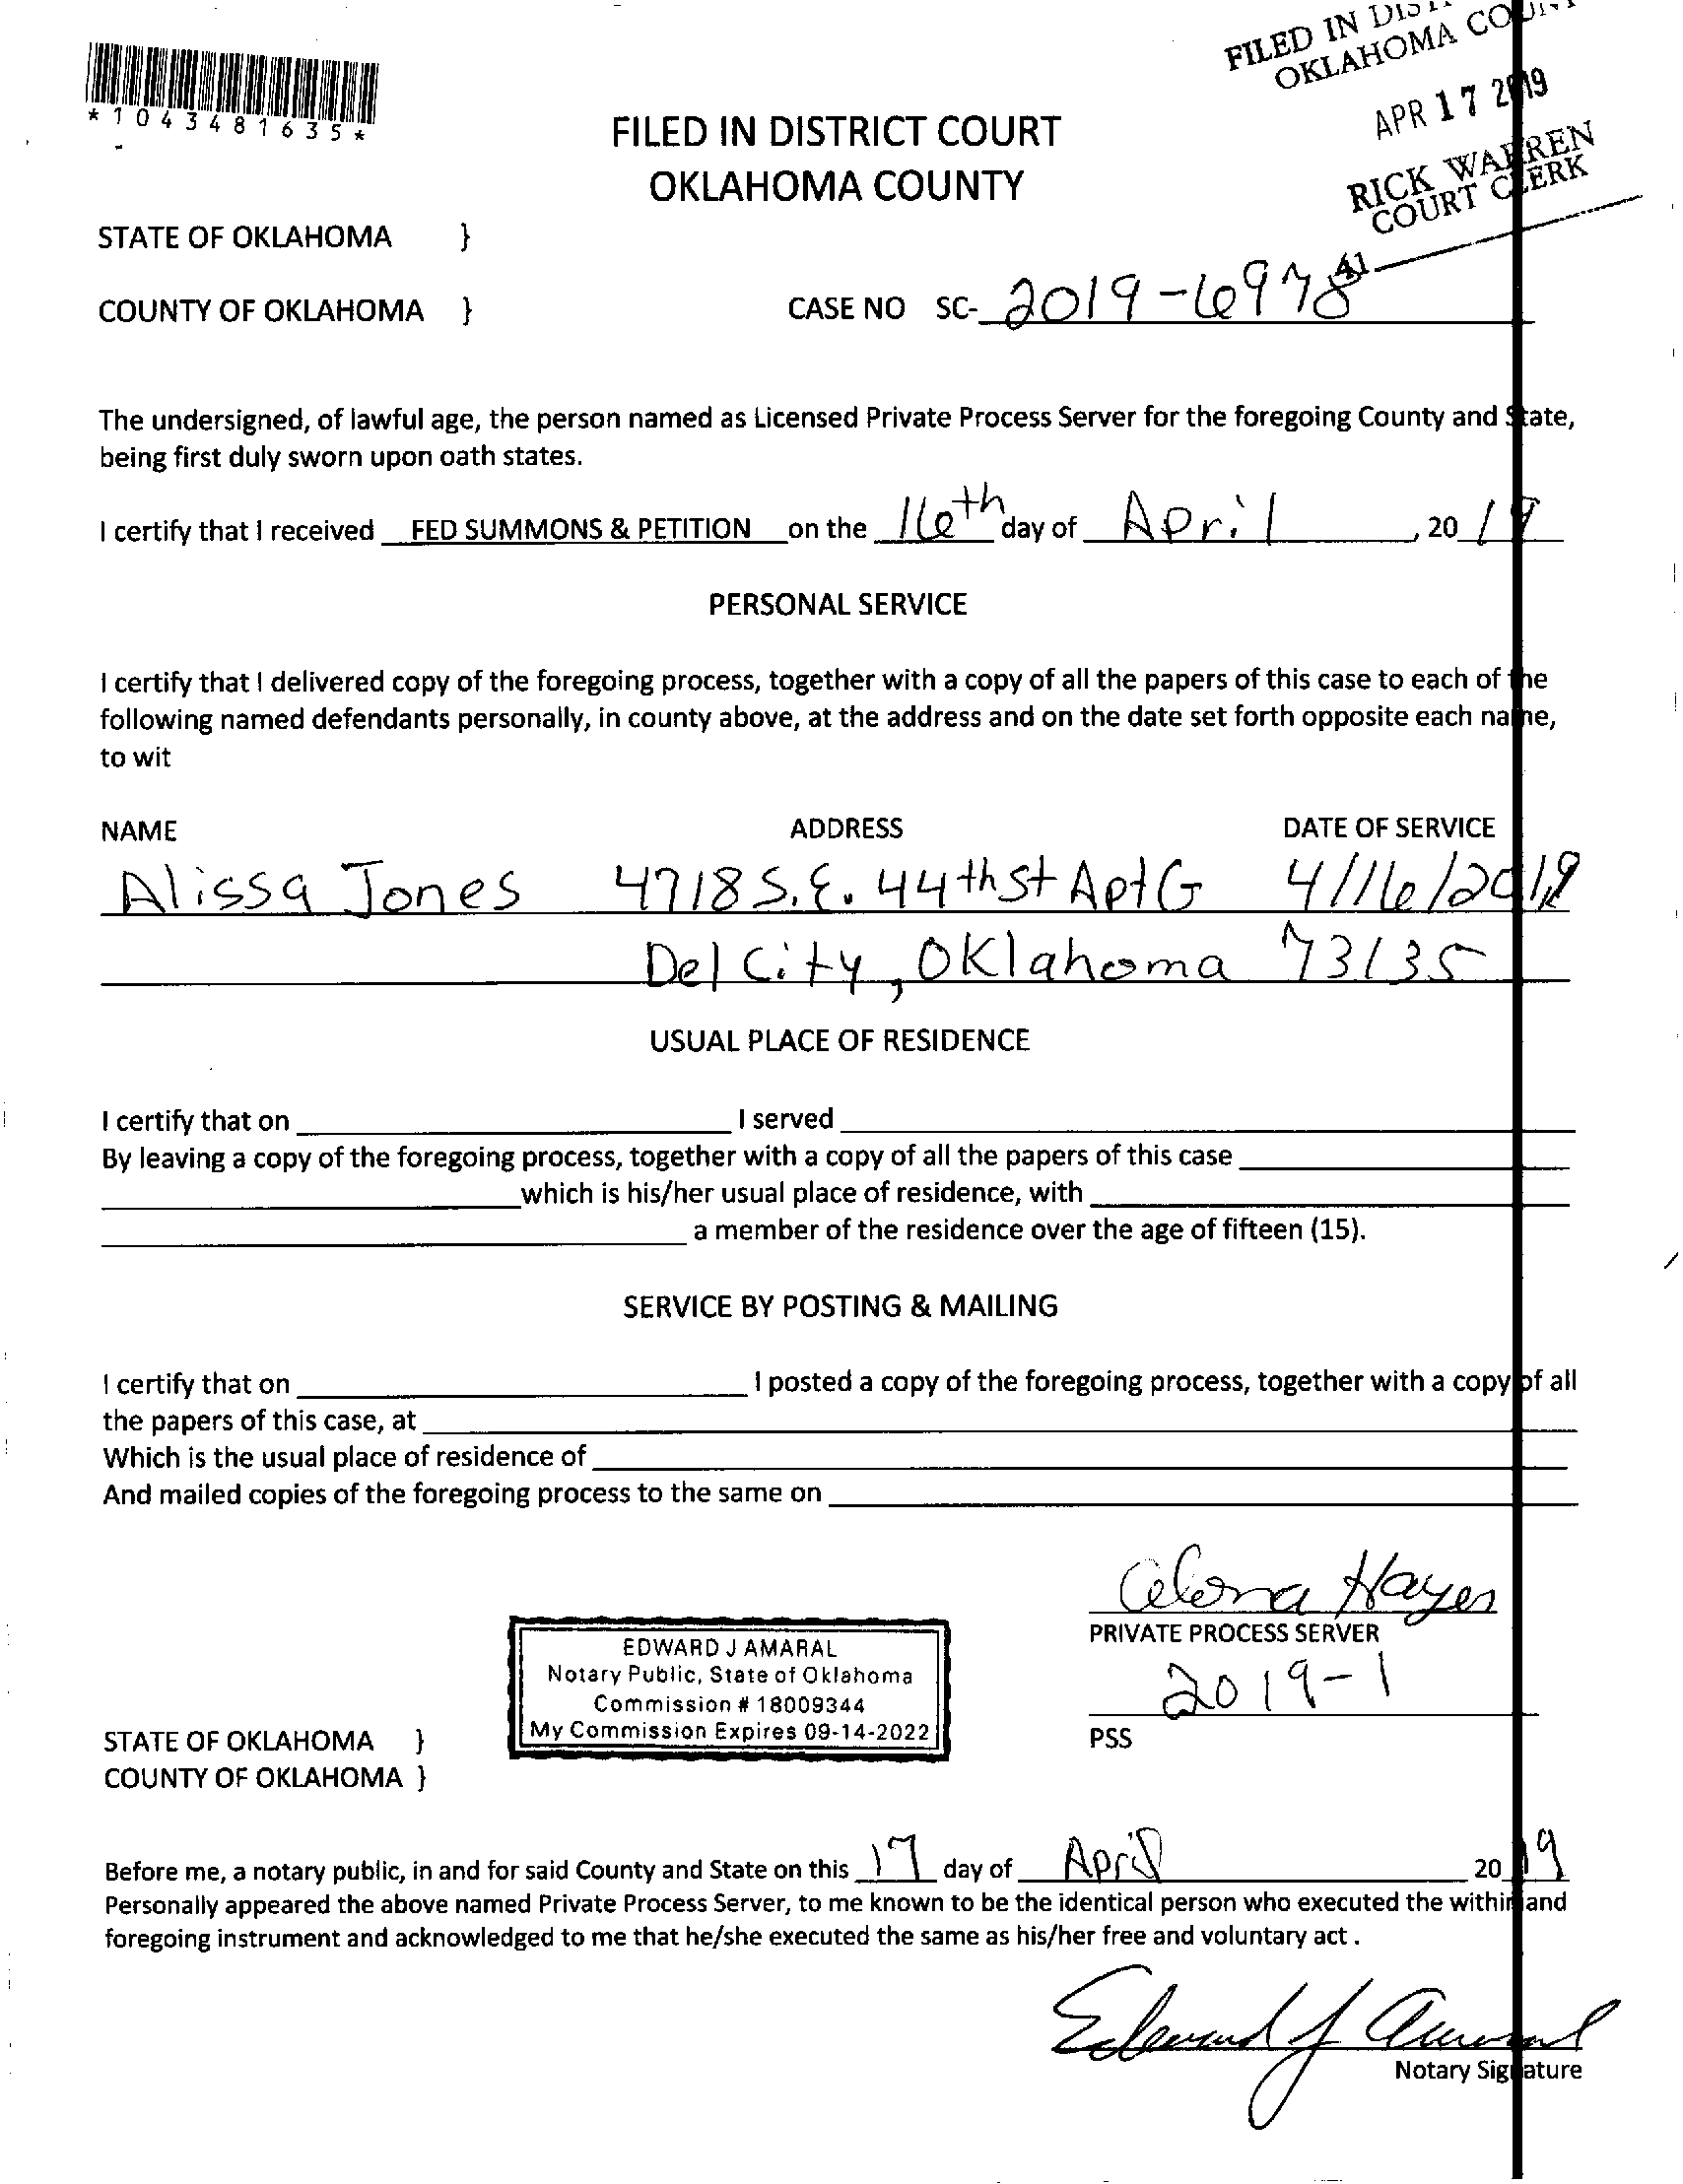 FILED IN
OKLAHOMA
APR 17 2019
RICK WARREN
COURT CLERK
41
*1043481635*
FILED IN DISTRICT COURT
OKLAHOMA COUNTY
STATE OF OKLAHOMA }
COUNTY OF OKLAHOMA } CASE NO SC- 2019-6978
The undersigned, of lawful age, the person named as Licensed Private Process Server for the foregoing County and State,
being first duly sworn upon oath states.
I certify that I received FED SUMMONS & PETITION on the 16th day of April, 20 19
PERSONAL SERVICE
I certify that I delivered copy of the foregoing process, together with a copy of all the papers of this case to each of the
following named defendants personally, in county above, at the address and on the date set forth opposite each name,
to wit
NAME ADDRESS DATE OF SERVICE
Alissa Jones 4718 S.E. 44th St Apt G 4/16/2019
Del City, Oklahoma 73135
USUAL PLACE OF RESIDENCE
I certify that on I served
By leaving a copy of the foregoing process, together with a copy of all the papers of this case
which is his/her usual place of residence, with
a member of the residence over the age of fifteen (15).
SERVICE BY POSTING & MAILING
I certify that on I posted a copy of the foregoing process, together with a copy of all
the papers of this case, at
Which is the usual place of residence of
And mailed copies of the foregoing process to the same on
Hayes
PRIVATE PROCESS SERVER
2019-1
PSS
EDWARD J AMARAL
Notary Public, State of Oklahoma
Commission # 18009344
My Commission Expires 09-14-2022
STATE OF OKLAHOMA }
COUNTY OF OKLAHOMA }
Before me, a notary public, in and for said County and State on this 17 day of April 20 19
Personally appeared the above named Private Process Server, to me known to be the identical person who executed the within and
foregoing instrument and acknowledged to me that he/she executed the same as his/her free and voluntary act .
Edward J Amaral
Notary Signature